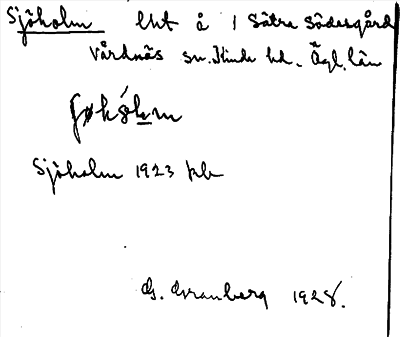 Sjöholm lht å 1 Sätra Södesgård
Vårdnäs sn. Kinds hd. Ögl. län
Sjöholm 1923 kb
G. Granberg 1928.